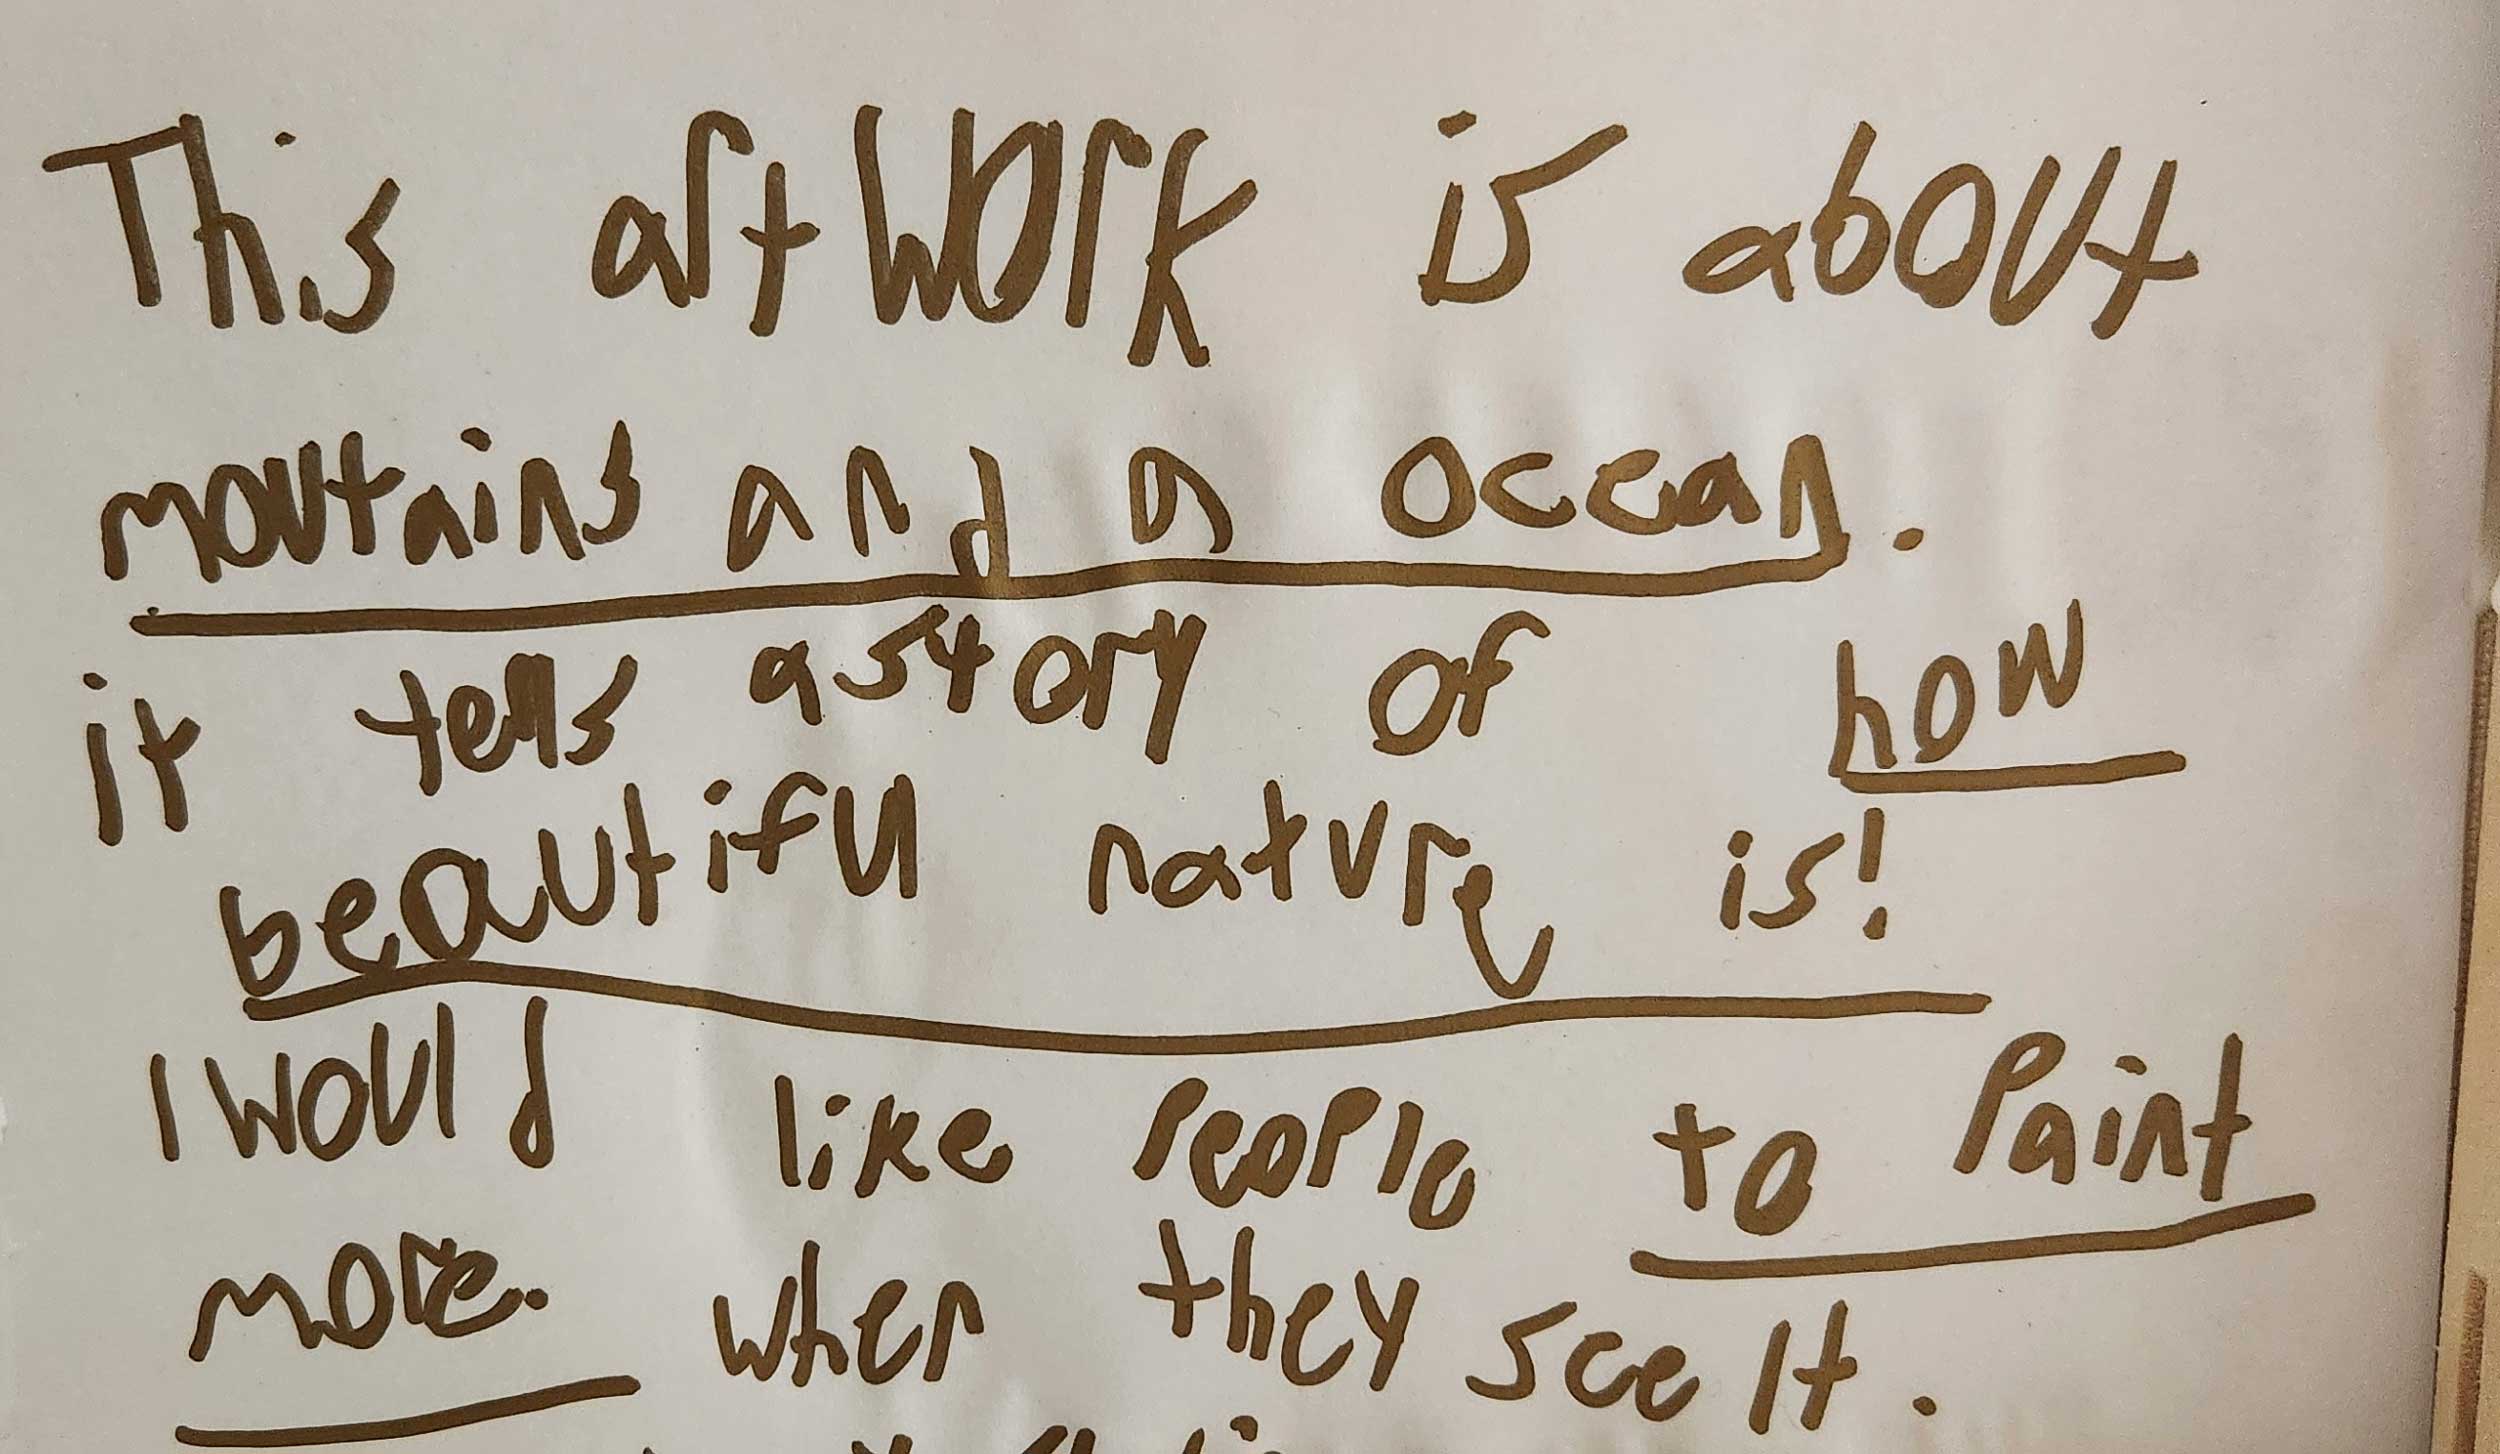 This artwork is about
moutains and a ocean.
it tells a story of how
beautiful nature is!
I would like people to Paint
more. when they see It.